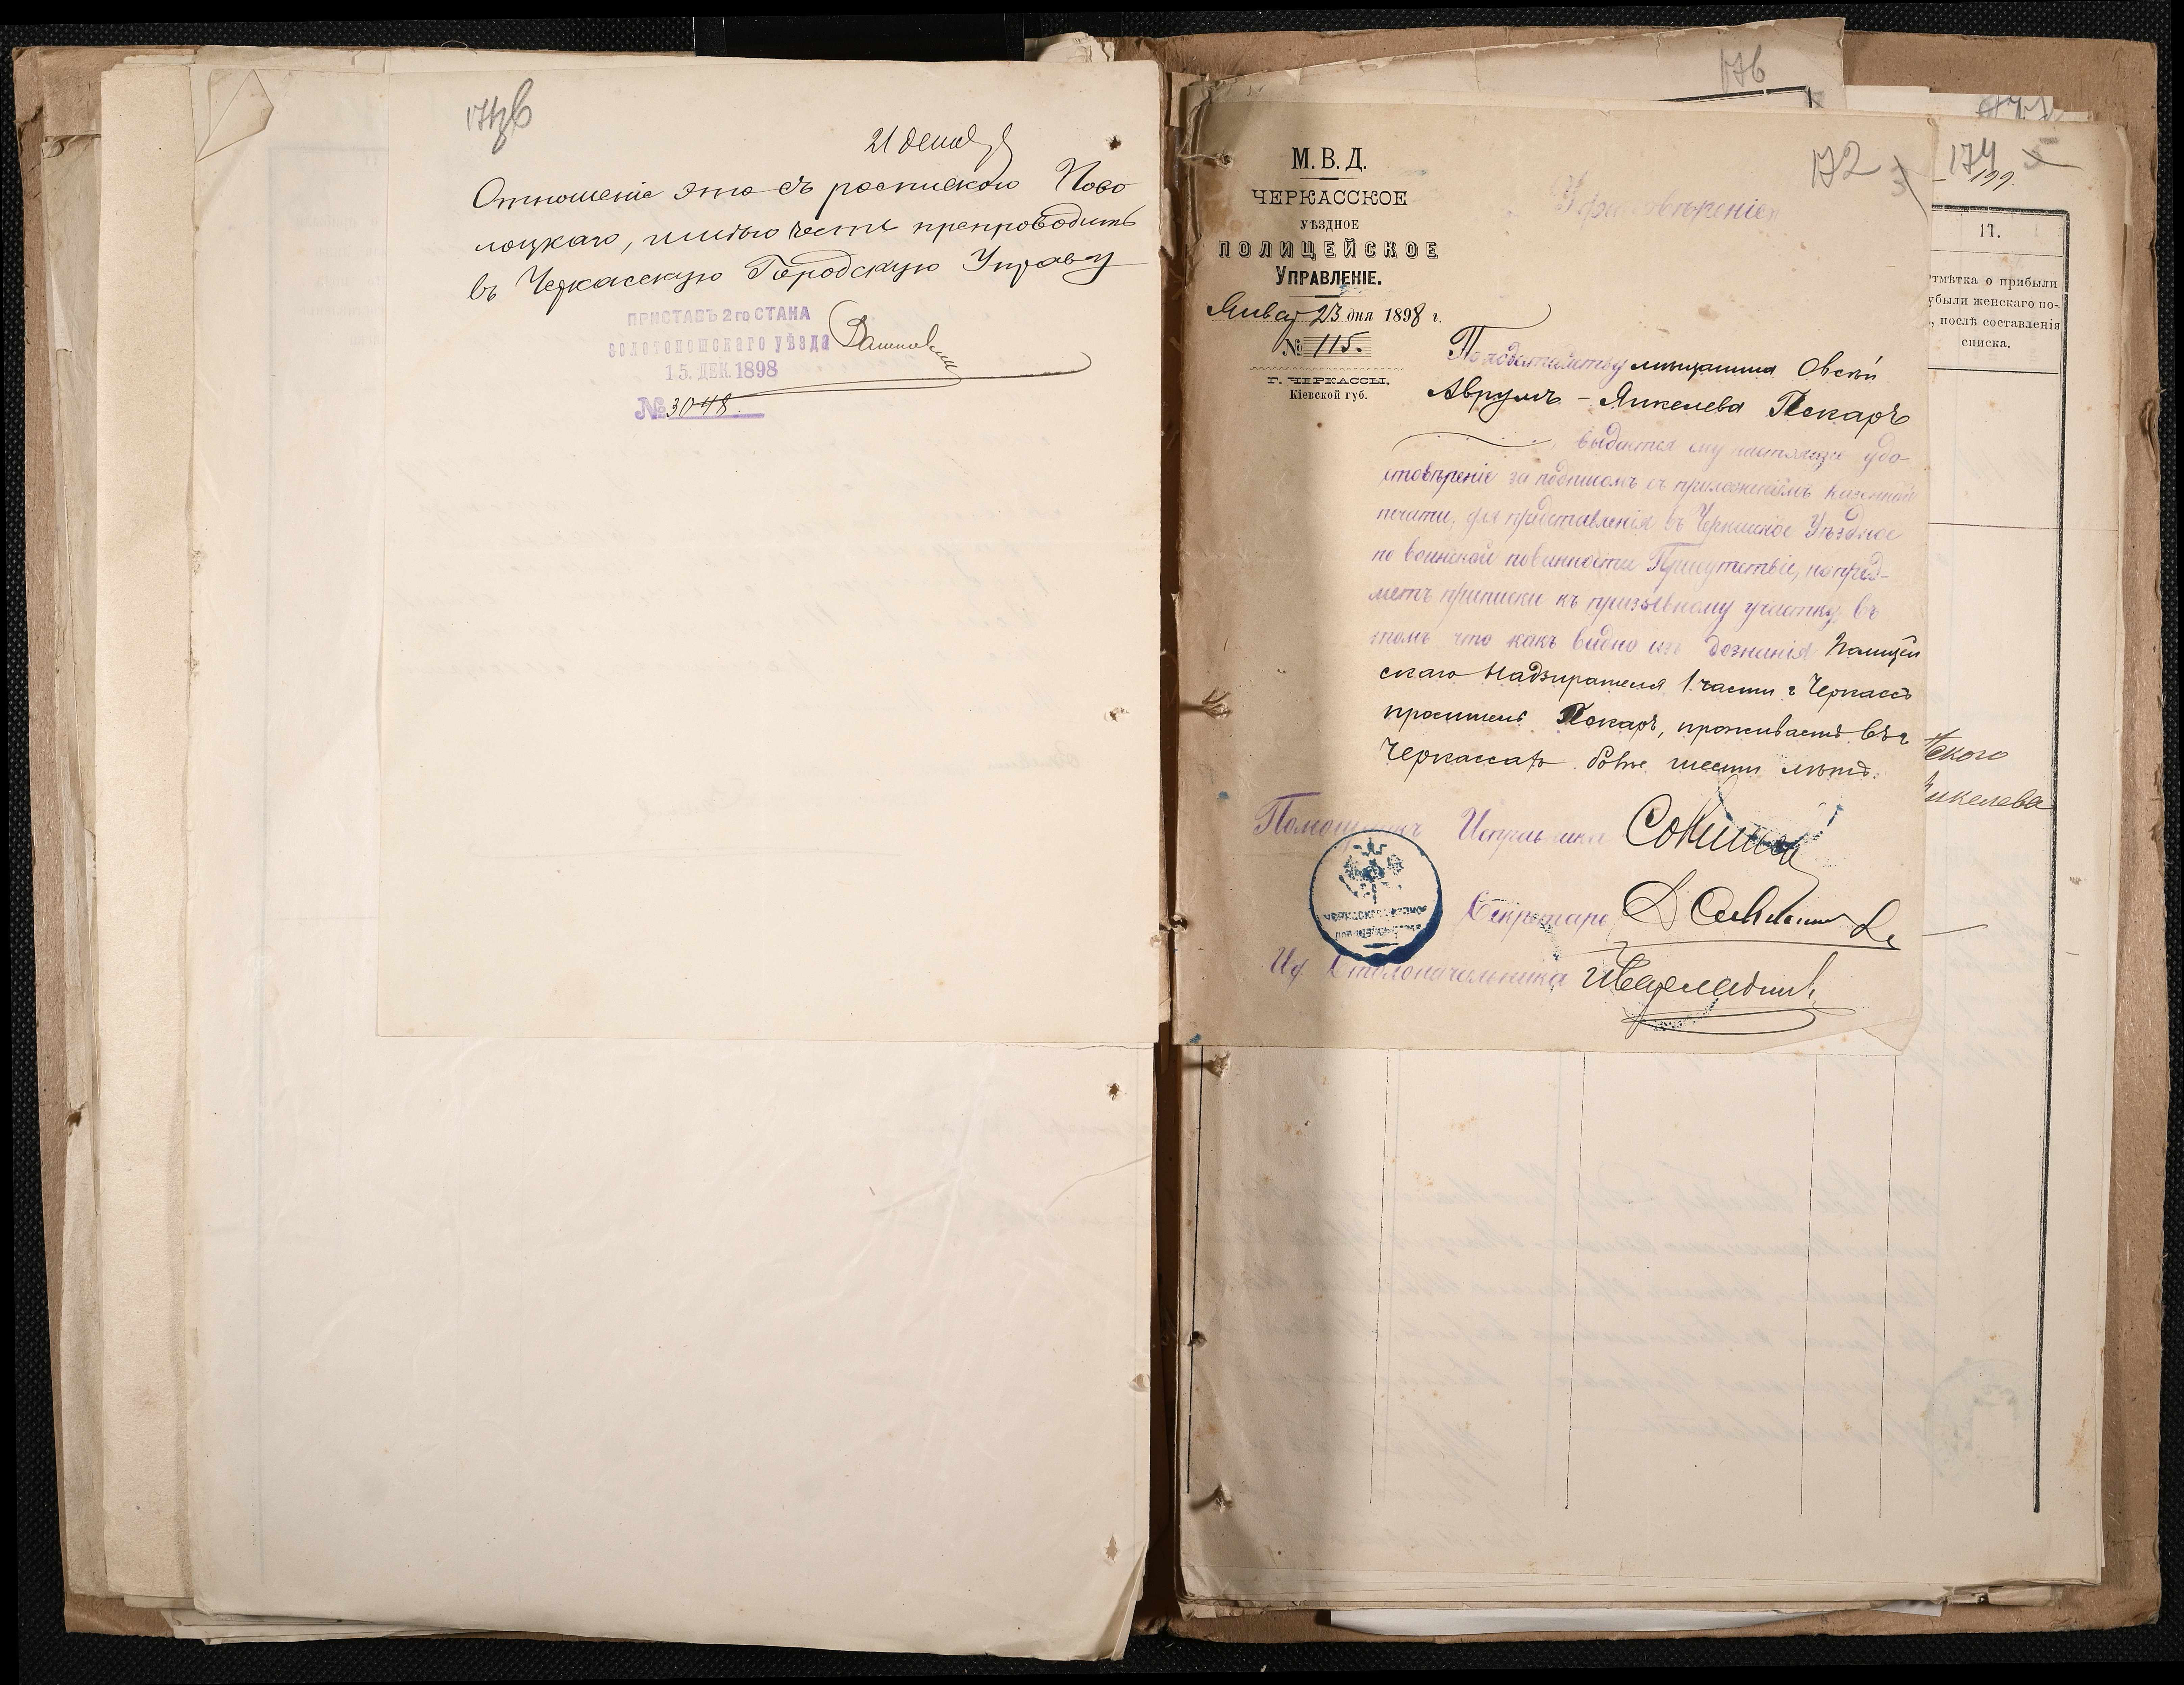 21 декабр
Отношеніе это съ роспискою Ново
лоцкаго, имѣю честь препроводить
въ Черкасскую Городскую Управу
ПРИСТАВЪ 2го СТАНА
ЗОЛОТОНОШСКАГО УѢЗДА
15. ДЕК. 1898
№ 3048.
176
172
174
199.
М. В. Д.
ЧЕРКАССКОЕ
УѢЗДНОЕ
ПОЛИЦЕЙСКОЕ
УПРАВЛЕНІЕ.
Январ 23 дня 1898 г.
№ 115.
Г. ЧЕРКАССЫ,
Кіевской губ.
Удостовѣреніе
По ходатайству мѣщанина Овсѣй
Аврумъ - Янкелева Пекаръ
выдается ему настоящее удо-
стовѣреніе за подписомъ съ приложеніемъ казенной
печати, для представленія въ Черкасское Уѣздное
по воинской повинности Присутствіе, на пред-
метъ приписки къ призывному участку, въ
томъ что какъ видно изъ дознанія Полицей
скаго Надзирателя 1 части г Черкассъ
проситель Пекаръ, проживаетъ въ г
Черкассахъ болѣе шести лѣтъ.
Помощникъ Исправника
Секретарь
И д Столоначальника
17.
тмѣтка о прибыли
убыли женскаго по-
, послѣ составленія
списка.
ского
нкелева